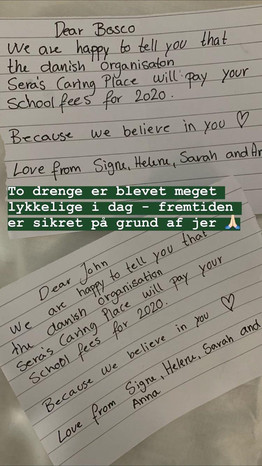 Dear Bosco
We are happy to tell you that
the danish organisation
Sera's Caring Place will pay your
School fees for 2020.
Because we believe in you ♡
Love from Signe, Helene, Sarah and An
To drenge er blevet meget
lykkelige i dag - fremtiden
er sikret på grund af jer 🙏🏻
Dear John
We are happy to tell you that
the danish organisation
Sera's Caring Place will pay your
School fees for 2020.
Because we believe in you ♡
Love from Signe, Helene, Sarah and
Anna